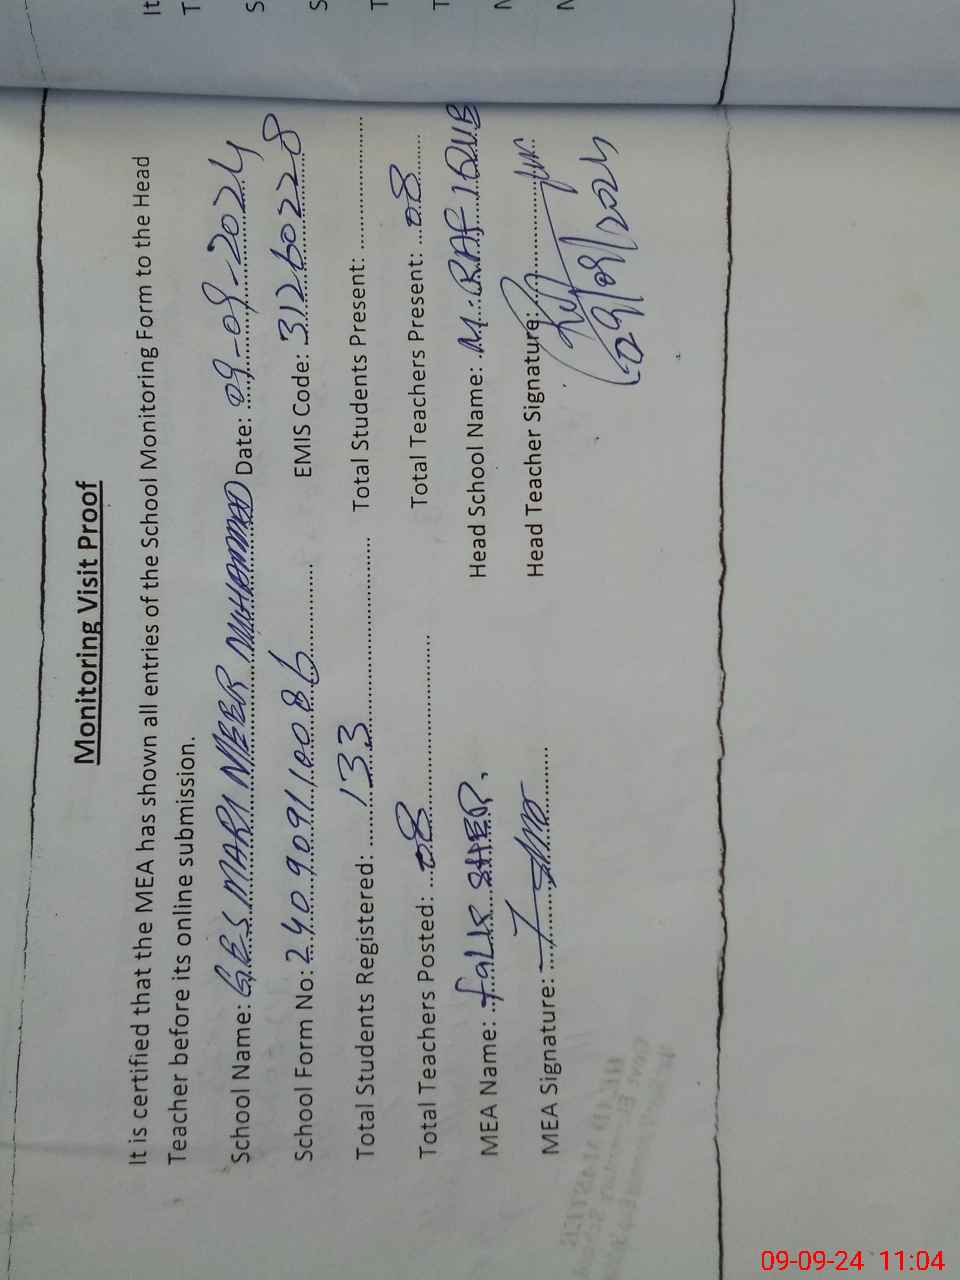 Monitoring Visit Proof
It is certified that the MEA has shown all entries of the School Monitoring Form to the Head
Teacher before its online submission.
School Name: G.E.S MARI MEER MUHAMMAD Date: 09-09-2024
School Form No: 2409091 10086 EMIS Code: 31260228
Total Students Registered: 133 Total Students Present:
Total Teachers Posted: 08 Total Teachers Present: 08
MEA Name: FALIK SHER. Head School Name: M. RAF IQUB
MEA Signature: Head Teacher Signature:
09/09/2024
09-09-24 11:04